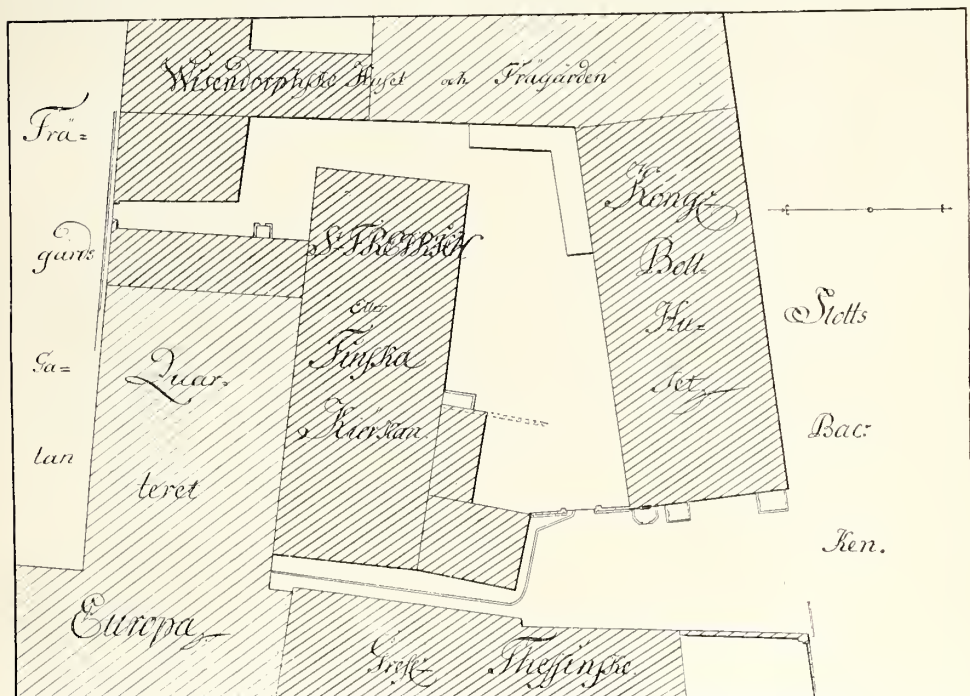 Wisendorphske Huset och Trägården
Trä=
gårds
Ga=
tan
Quar=
teret
Europa
St. FREDRICH
Eller
Finska
Kiörkan.
Kongz
Boll=
Hu=
set
Slotts
Bac=
Ken.
Gref: Thessinske.